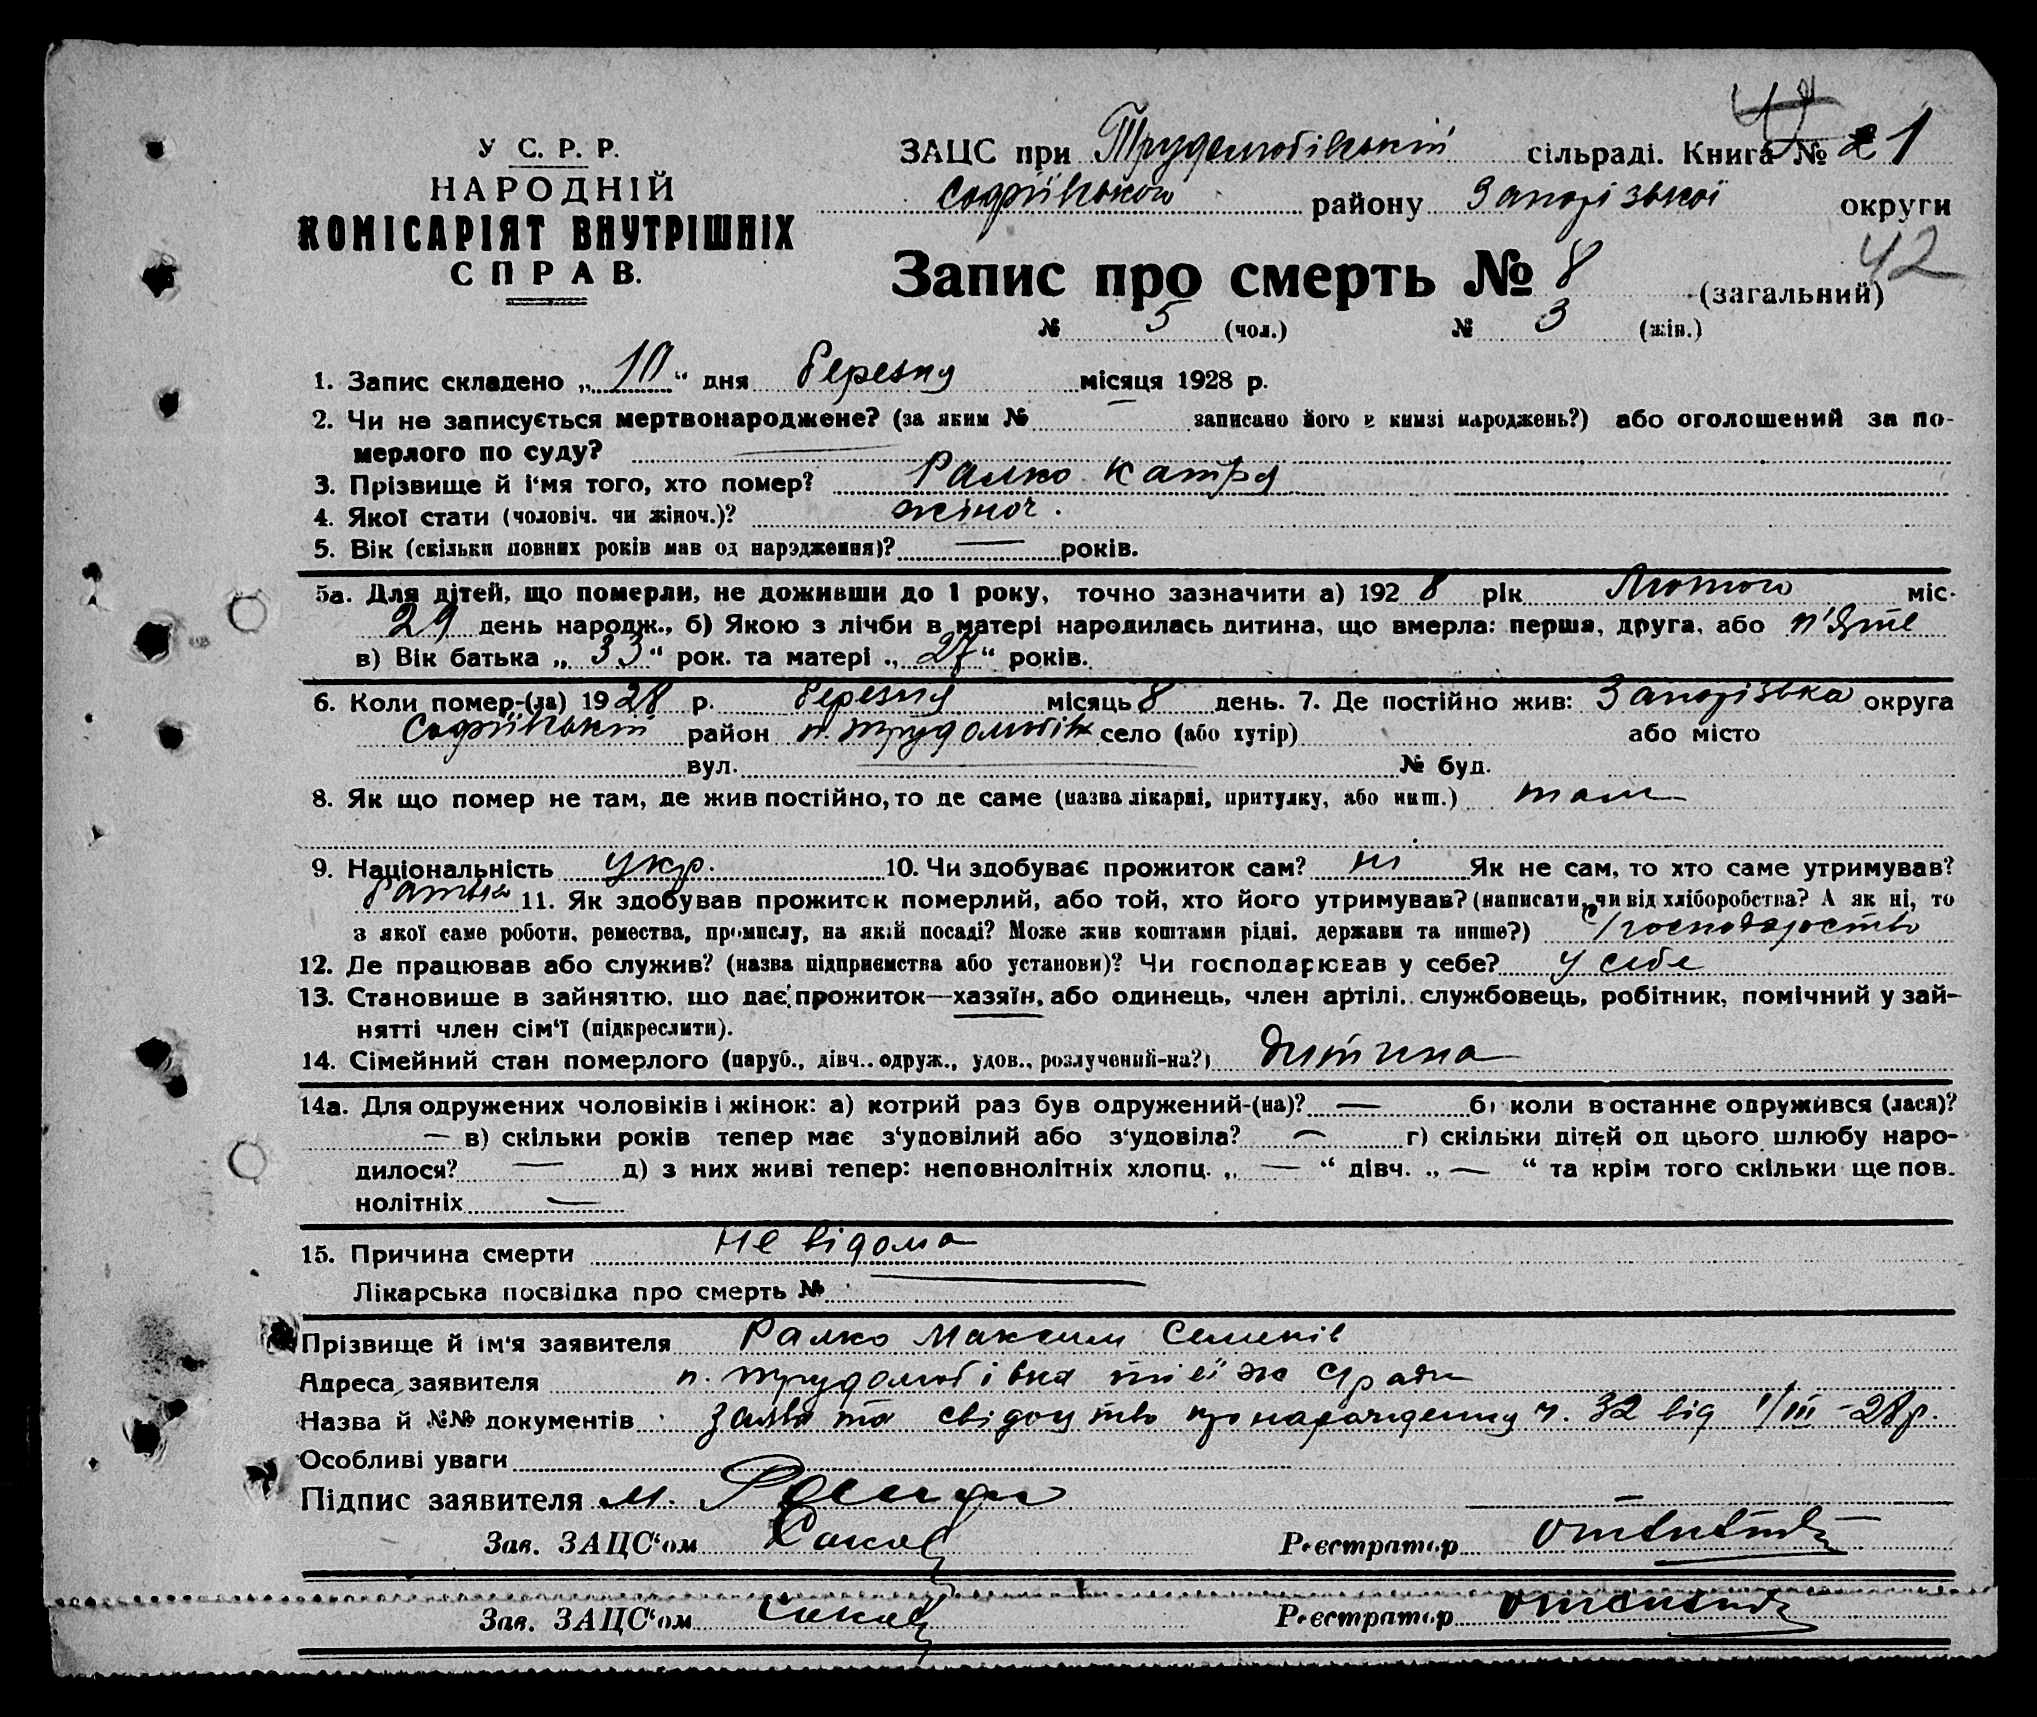 У С. Р. Р.
НАРОДНІЙ
КОМІСАРІЯТ ВНУТРІШНІХ
СПРАВ.
ЗАЦС при Трудолюбівській сільраді. Книга № 1
Софіївського району Запорізької округи
42
Запис про смерть № 8 (загальний)
№ 5 (чол.) № 3 (жін.)
1. Запис складено „10“ дня березня місяця 1928 р.
2. Чи не записується мертвонароджене? (за яким № — записано його в книзі народжень?) або оголошений за по-
мерлого по суду? —
3. Прізвище й і‘мя того, хто помер? Ралко Катря
4. Якої стати (чоловіч. чи жіноч.)? жіноч.
5. Вік (скільки повних років мав од народження)? — років.
5а. Для дітей, що померли, не доживши до 1 року, точно зазначити а) 1928 рік Лютого міс.
29 день народж., б) Якою з лічби в матері народилась дитина, що вмерла: перша, друга, або п'яте
в) Вік батька „33“ рок. та матері „27“ років.
6. Коли помер-(ла) 1928 р. березня місяць 8 день. 7. Де постійно жив: Запорізька округа
Софіївський район п. Трудолюбівк село (або хутір) або місто
вул. — № буд.
8. Як що помер не там, де жив постійно, то де саме (назва лікарні, притулку, або инш.) там
9. Національність укр. 10. Чи здобуває прожиток сам? ні Як не сам, то хто саме утримував?
батько 11. Як здобував прожиток померлий, або той, хто його утримував? (написати, чи від хліборобства? А як ні, то
з якої саме роботи, ремества, промислу, на якій посаді? Може жив коштами рідні, держави та инше?) с/господарство
12. Де працював або служив? (назва підприємства або установи)? Чи господарював у себе? у себе
13. Становище в зайняттю, що дає прожиток—хазяїн, або одинець, член артілі, службовець, робітник, помічний у зай-
нятті член сім‘ї (підкреслити).
14. Сімейний стан померлого (паруб., дівч., одруж., удов., розлучений-на?) дитина
14а. Для одружених чоловіків і жінок: а) котрий раз був одружений-(на)? — б) коли востаннє одружився (лася)?
— в) скільки років тепер має з‘удовілий або з‘удовіла? — г) скільки дітей од цього шлюбу наро-
дилося? — д) з них живі тепер: неповнолітніх хлопц. „ — “ дівч. „ — “ та крім того скільки ще пов-
нолітніх —
15. Причина смерти Не відома
Лікарська посвідка про смерть № —
Прізвище й ім‘я заявителя Ралко Максим Семенів
Адреса заявителя п. Трудолюбівка тієї ж с/ради
Назва й №№ документів заява та свідоцтво про народження ч. 32 від 1/III -28 р.
Особливі уваги
Підпис заявителя М.
Зав. ЗАЦС‘ом Реєстратор
Зав. ЗАЦС‘ом Реєстратор